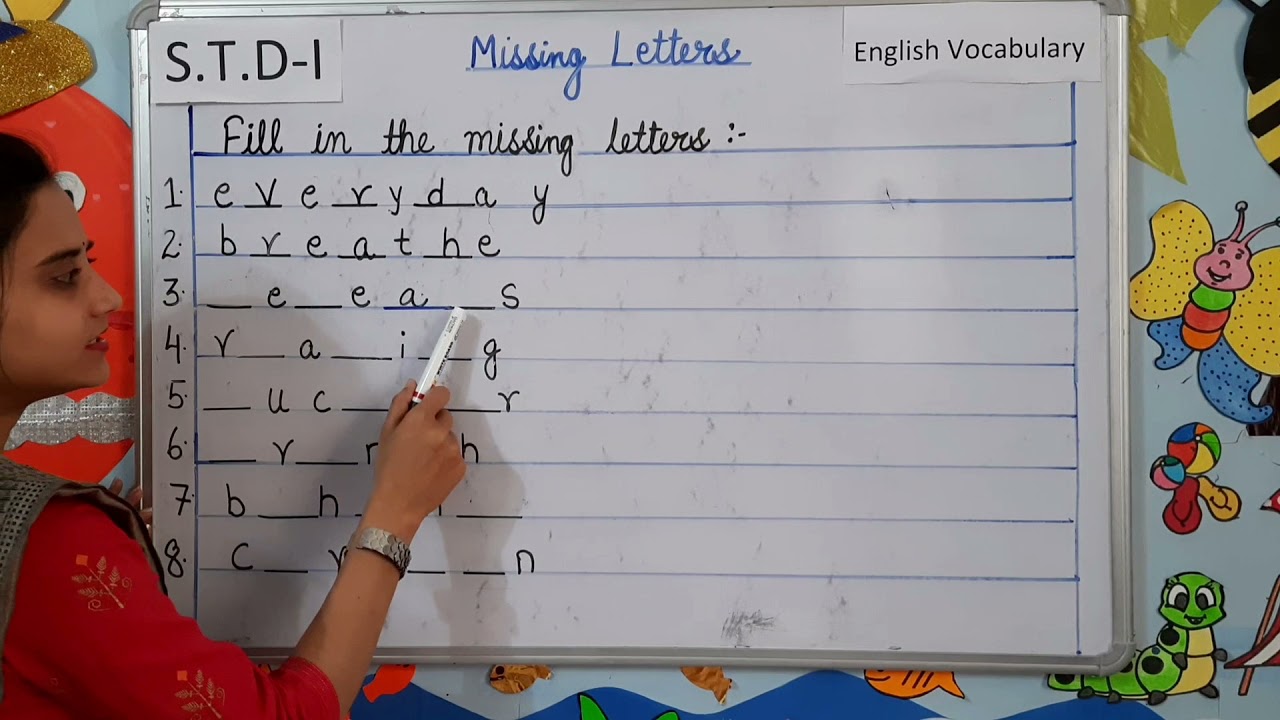 S.T.D-I
Missing Letters
English Vocabulary
Fill in the missing letters :-
1. e v e r y d a y
2. b r e a t h e
3. _ e _ e a _ s
4. r _ a _ i _ g
5. _ u c _ _ r
6. _ r _ r h
7. b _ h _
8. c _ r _ _ n